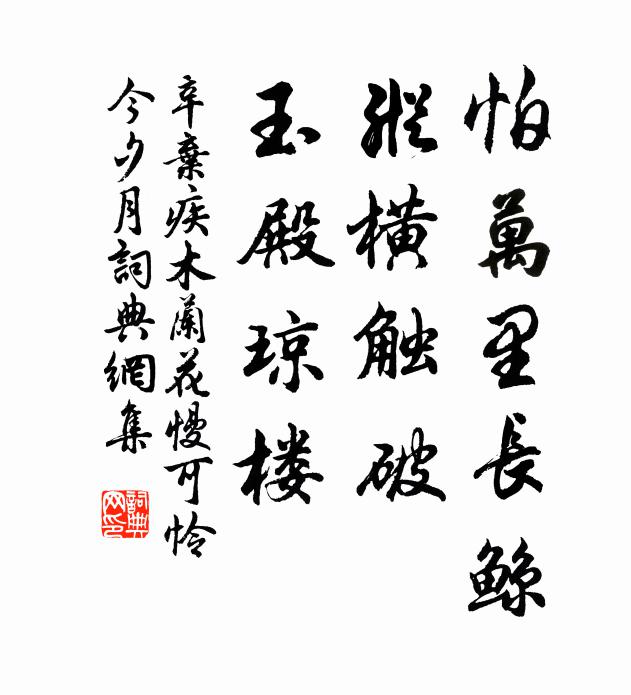 怕萬里長鲸
縱横触破
玉殿琼楼
辛棄疾木蘭花慢可怜
今夕月詞典網集
詞典网印